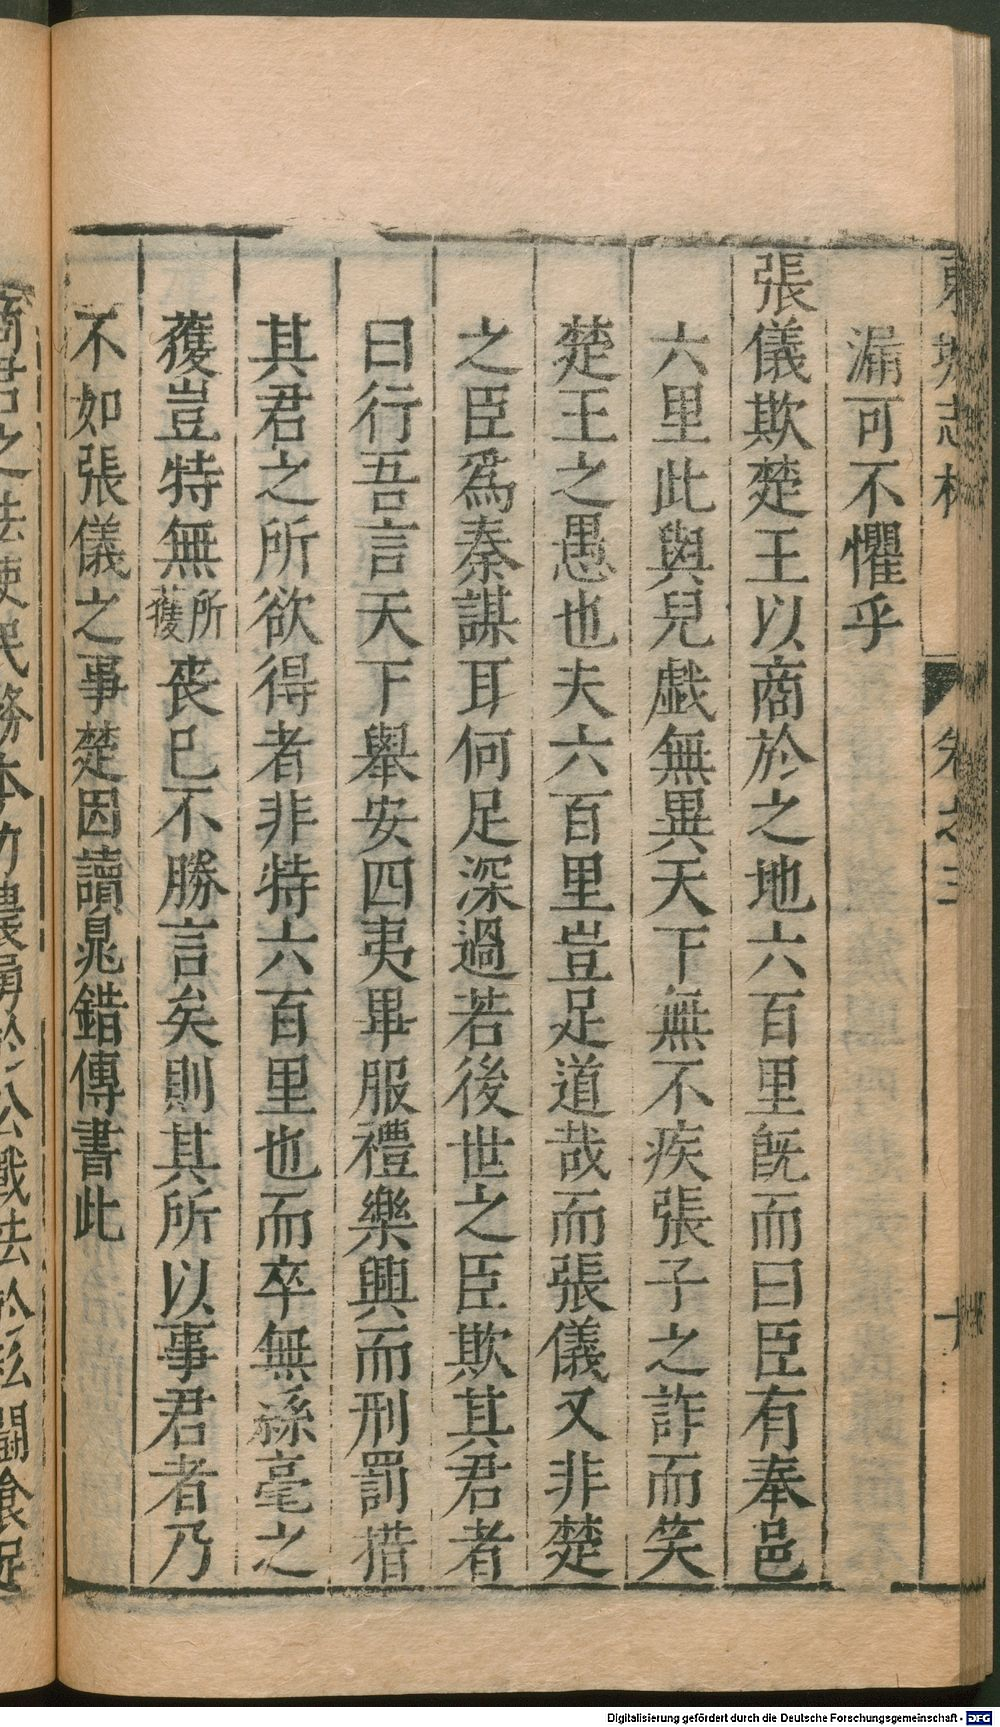 漏可不懼乎
張儀欺楚王以商於之地六百里旣而曰臣有奉邑
六里此與兒戯無異天下無不疾張子之詐而笑
楚王之愚也夫六百里豈足道哉而張儀又非楚
之臣爲秦謀耳何足深過若後世之臣欺其君者
曰行吾言天下舉安四夷畢服禮樂興而刑罰措
其君之所欲得者非特六百里也而卒無絲毫之
獲豈特無所獲喪已不勝言矣則其所以事君者乃
不如張儀之事楚因讀晁錯傳書此
商君之法使民務本力農勇於公戰法於私鬪食足
Digitalisierung gefördert durch die Deutsche Forschungsgemeinschaft - DFG